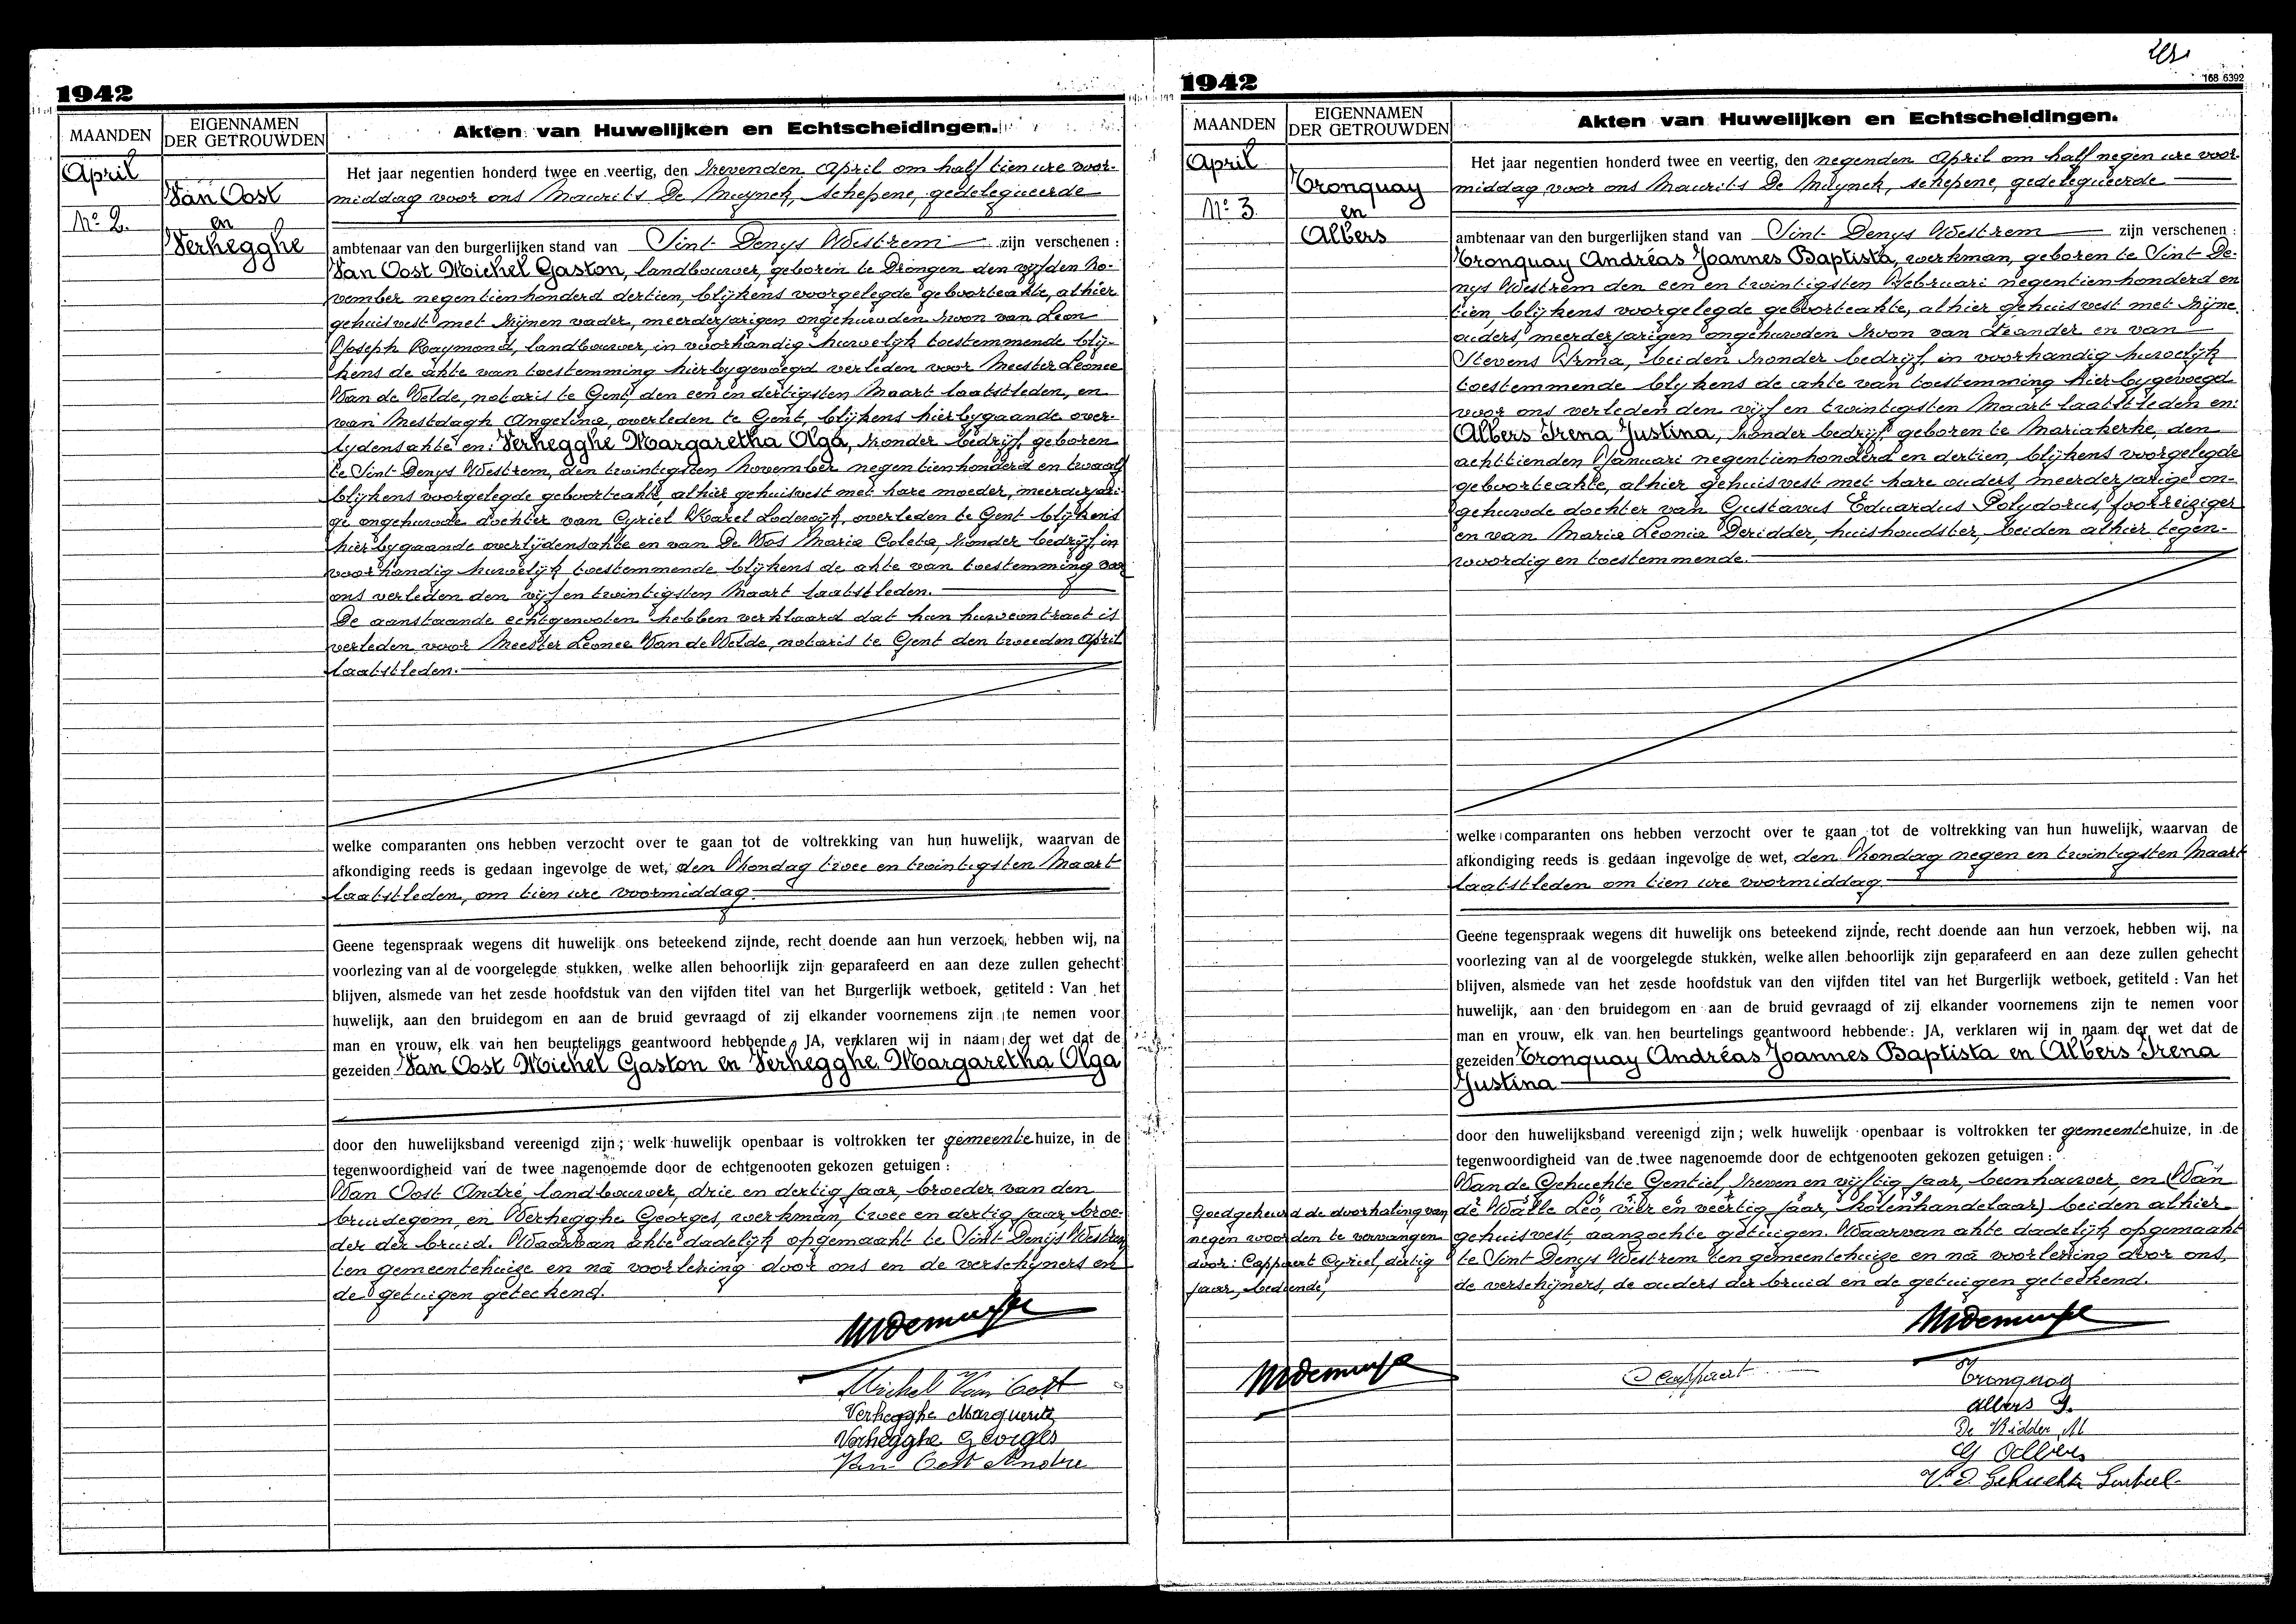 1942
MAANDEN
EIGENNAMEN
DER GETROUWDEN
Akten van Huwelijken en Echtscheidingen.
April
Van Oost
No 2.
en
Verhegghe
Het jaar negentien honderd twee en veertig, den zevenden April om half tien ure voor-
middag voor ons Maurits De Muynck, schepene, gedelegueerde
ambtenaar van den burgerlijken stand van Sint Denys Westrem zijn verschenen :
Van Oost Michel Gaston, landbouwer, geboren te Drongen den vijfden No-
vember negentienhonderd dertien, blijkens voorgelegde geboorteakte, alhier
gehuisvest met zijnen vader, meerderjarigen ongehuwden zoon van Leon
Joseph Raymond, landbouwer, in voorhandig huwelijk toestemmende blij-
kens de akte van toestemming hierbygevoegd verleden voor Meester Leonce
Van de Velde, notaris te Gent, den een en dertigsten Maart laatstleden, en
van Mestdagh Angelina, overleden te Gent, blijkens hierbygaande over-
lydensakte en: Verhegghe Margaretha Olga, zonder bedrijf, geboren
te Sint Denys Westrem, den twintigsten November negentienhonderd en twaalf
blijkens voorgelegde geboorteakte, alhier gehuisvest met hare moeder, meerderjari-
ge ongehuwde dochter van Cyriel Karel Lodewijk, overleden te Gent blijkens
hierbygaande overlijdensakte en van De Vos Maria Coleta, zonder bedrijf, in
voorhandig huwelijk toestemmende blijkens de akte van toestemming voor
ons verleden den vijf en twintigsten Maart laatstleden.
De aanstaande echtgenooten hebben verklaard dat hun huwcontract is
verleden voor Meester Leonce Van de Velde, notaris te Gent den tweeden April
laatstleden.
welke comparanten ons hebben verzocht over te gaan tot de voltrekking van hun huwelijk, waarvan de
afkondiging reeds is gedaan ingevolge de wet, den Zondag twee en twintigsten Maart
laatstleden, om tien ure voormiddag
Geene tegenspraak wegens dit huwelijk ons beteekend zijnde, recht doende aan hun verzoek, hebben wij, na
voorlezing van al de voorgelegde stukken, welke allen behoorlijk zijn geparafeerd en aan deze zullen gehecht
blijven, alsmede van het zesde hoofdstuk van den vijfden titel van het Burgerlijk wetboek, getiteld : Van het
huwelijk, aan den bruidegom en aan de bruid gevraagd of zij elkander voornemens zijn te nemen voor
man en vrouw, elk van hen beurtelings geantwoord hebbende : JA, verklaren wij in naam der wet dat de
gezeiden Van Oost Michel Gaston en Verhegghe Margaretha Olga
door den huwelijksband vereenigd zijn ; welk huwelijk openbaar is voltrokken ter gemeentehuize, in de
tegenwoordigheid van de twee nagenoemde door de echtgenooten gekozen getuigen :
Van Oost André, landbouwer, drie en dertig jaar, broeder van den
bruidegom, en Verhegghe Georges, werkman, twee en dertig jaar, broe-
der der bruid. Waarvan akte dadelijk opgemaakt te Sint Denijs Westrem
ten gemeentehuize en na voorlezing door ons en de verschijners en
de getuigen geteekend.
MDemuynck
Michel Van Oost
Verhegghe Marguerite
Verhegghe Georges
Van Oost Andre
168 6392
1942
MAANDEN
EIGENNAMEN
DER GETROUWDEN
Akten van Huwelijken en Echtscheidingen.
April
Tronquay
No 3.
en
Albers
Het jaar negentien honderd twee en veertig, den negenden April om half negen ure voor-
middag voor ons Maurits De Muynck, schepene, gedelegueerde
ambtenaar van den burgerlijken stand van Sint Denys Westrem zijn verschenen :
Tronquay Andréas Joannes Baptista, werkman, geboren te Sint De-
nys Westrem den een en twintigsten Februari negentienhonderd en
tien blijkens voorgelegde geboorteakte, alhier gehuisvest met zijne
ouders, meerderjarigen ongehuwden zoon van Leander en van
Stevens Irma, beiden zonder bedrijf, in voorhandig huwelijk
toestemmende blijkens de akte van toestemming hierbygevoegd
voor ons verleden den vijf en twintigsten Maart laatstleden en:
Albers Irena Justina, zonder bedrijf geboren te Mariakerke, den
achttienden Januari negentienhonderd en dertien, blijkens voorgelegde
geboorteakte, alhier gehuisvest met hare ouders, meerderjarige on-
gehuwde dochter van Gustavus Eduardus Polydorus, foorreiziger
en van Maria Leonia Deridder, huishoudster, beiden alhier tegen-
woordig en toestemmende.
welke comparanten ons hebben verzocht over te gaan tot de voltrekking van hun huwelijk, waarvan de
afkondiging reeds is gedaan ingevolge de wet, den Zondag negen en twintigsten Maart
laatstleden om tien ure voormiddag.
Geene tegenspraak wegens dit huwelijk ons beteekend zijnde, recht doende aan hun verzoek, hebben wij, na
voorlezing van al de voorgelegde stukken, welke allen behoorlijk zijn geparafeerd en aan deze zullen gehecht
blijven, alsmede van het zesde hoofdstuk van den vijfden titel van het Burgerlijk wetboek, getiteld : Van het
huwelijk, aan den bruidegom en aan de bruid gevraagd of zij elkander voornemens zijn te nemen voor
man en vrouw, elk van hen beurtelings geantwoord hebbende : JA, verklaren wij in naam der wet dat de
gezeiden Tronquay Andréas Joannes Baptista en Albers Irena
Justina
door den huwelijksband vereenigd zijn ; welk huwelijk openbaar is voltrokken ter gemeentehuize, in de
tegenwoordigheid van de twee nagenoemde door de echtgenooten gekozen getuigen :
Van de Gehuchte Gentiel, zeven en vijftig jaar, beenhouwer, en (Van
de Walle Leo, vier en veertig jaar, kolenhandelaar) beiden alhier
gehuisvest, aanzochte getuigen. Waarvan akte dadelijk opgemaakt
te Sint Denys Westrem ten gemeentehuize en na voorlezing door ons,
de verschijners, de ouders der bruid en de getuigen geteekend.
Goedgekeurd de doorhaling van
negen woorden te vervangen
door: Cappaert Cyriel, dertig
jaar, bediende,
MDemuynck
MDemuynck
Cappaert
Tronquay
Albers J.
De Ridder M
G Albers
Vd Gehuchte Gentiel